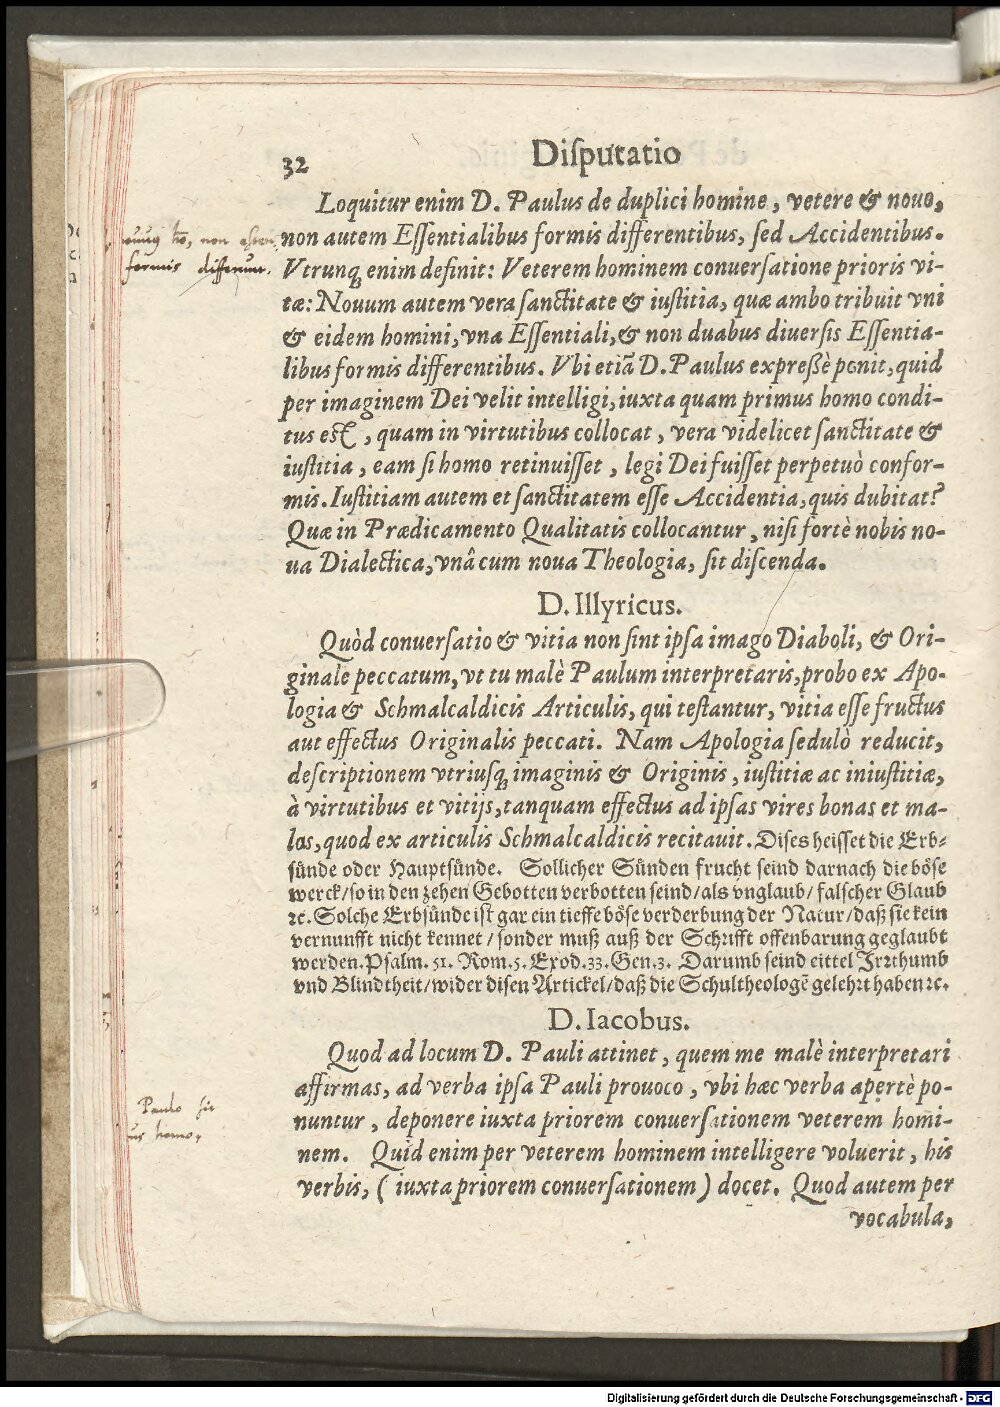 32 Diſputatio
Loquitur enim D. Paulus de duplici homine, vetere & nouo,
non autem Eſſentialibus formis differentibus, ſed Accidentibus.
Vtrunqꝫ enim definit: Veterem hominem conuerſatione prioris vi-
tæ: Nouum autem vera ſanctitate & iuſtitia, quæ ambo tribuit vni
& eidem homini, vna Eſſentiali, & non duabus diuerſis Eſſentia-
libus formis differentibus. Vbi etiã D. Paulus expreßè ponit, quid
per imaginem Dei velit intelligi, iuxta quam primus homo condi-
tus eſt, quam in virtutibus collocat, vera videlicet ſanctitate &
iuſtitia, eam ſi homo retinuiſſet, legi Dei fuiſſet perpetuò confor-
mis. Iuſtitiam autem et ſanctitatem eſſe Accidentia, quis dubitat?
Quæ in Prædicamento Qualitatis collocantur, niſi fortè nobis no-
ua Dialectica, vnâ cum noua Theologia, ſit diſcenda.
D. Illyricus.
Quòd conuerſatio & vitia non ſint ipſa imago Diaboli, & Ori-
ginale peccatum, vt tu malè Paulum interpretaris, probo ex Apo-
logia & Schmalcaldicis Articulis, qui teſtantur, vitia eſſe fructus
aut effectus Originalis peccati. Nam Apologia ſedulò reducit,
deſcriptionem vtriuſqꝫ imaginis & Originis, iuſtitiæ ac iniuſtitiæ,
à virtutibus et vitijs, tanquam effectus ad ipſas vires bonas et ma-
las, quod ex articulis Schmalcaldicis recitauit. Diſes heiſſet die Erb-
ſünde oder Hauptſünde. Sollicher Sünden frucht ſeind darnach die böſe
werck/ ſo in den zehen Gebotten verbotten ſeind/ als vnglaub/ falſcher Glaub
ꝛc. Solche Erbſünde iſt gar ein tieffe böſe verderbung der Natur/ daß ſie kein
vernunfft nicht kennet/ ſonder muß auß der Schrifft offenbarung geglaubt
werden. Pſalm. 51. Rom. 5. Exod. 33. Gen. 3. Darumb ſeind eittel Jrꝛthumb
vnd Blindtheit/ wider diſen Artickel/ daß die Schultheologẽ gelehꝛt haben ꝛc.
D. Iacobus.
Quod ad locum D. Pauli attinet, quem me malè interpretari
affirmas, ad verba ipſa Pauli prouoco, vbi hæc verba apertè po-
nuntur, deponere iuxta priorem conuerſationem veterem homi-
nem. Quid enim per veterem hominem intelligere voluerit, his
verbis, ( iuxta priorem conuerſationem ) docet. Quod autem per
vocabula,
non
formis differunt.
Paulo
homo,
Digitalisierung gefördert durch die Deutsche Forschungsgemeinschaft - DFG